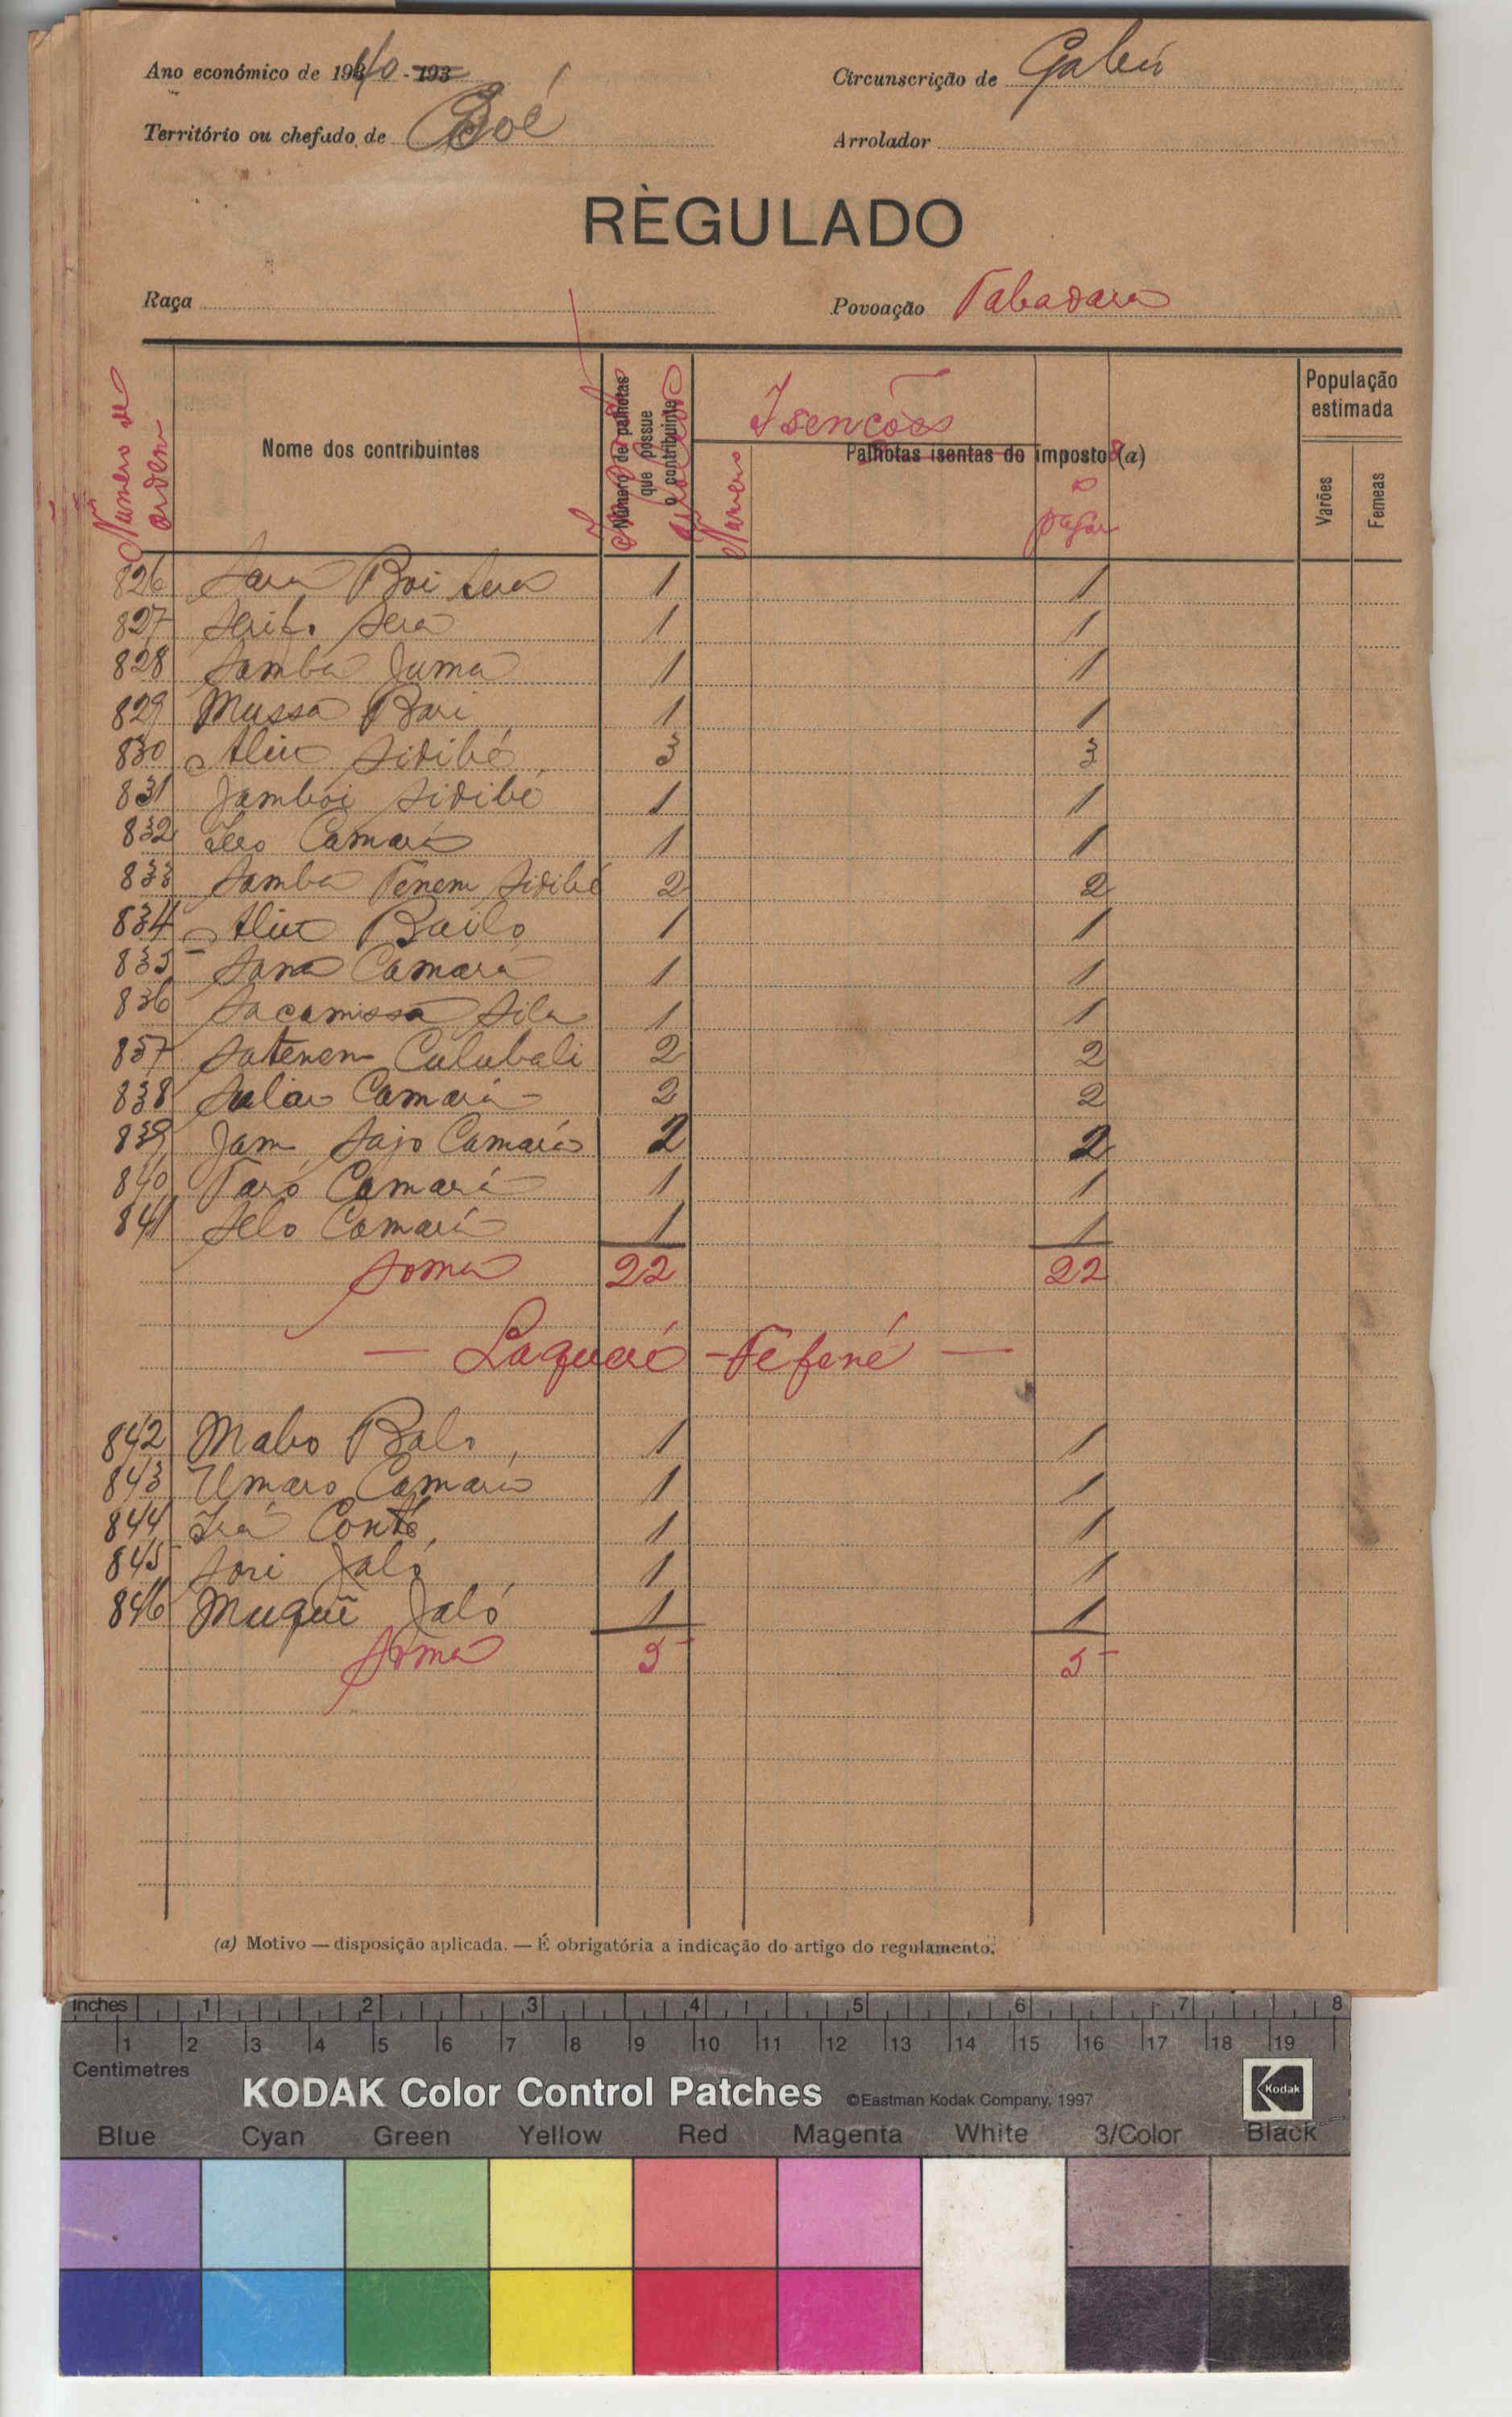 Ano económico de 1940 - 193
Circunscrição de Gabú
Território ou chefado de Boé
Arrolador
RÈGULADO
Raça
Povoação Tabadara
Numero de ordem
Nome dos contribuintes
Número de palhotas que possue o contribuinte
Isenções
Numero
Palhotas isentas do imposto (a)
a pagar
População estimada
Varões
Femeas
826 Sara Boi 1 1
827 Serifo Sera 1 1
828 Samba Juma 1 1
829 Mussa Bari 1 1
830 Aliu Sidibé 3 3
831 Jamboi Sidibé 1 1
832 Camará 1 1
833 Samba Tenem Sidibé 2 2
834 Aliu Bailo 1 1
835 Sana Camará 1 1
836 Sacamissa Sila 1 1
837 Satenem Culubali 2 2
838 Camará 2 2
839 Jam Sajo Camará 2 2
840 Taró Camará 1 1
841 Selo Camará 1 1
Soma 22 22
— Laquaré - Fefené —
842 Mabo Balo 1 1
843 Umaro Camará 1 1
844 Conté 1 1
845 Sori Jaló 1 1
846 Muquê Jaló 1 1
Soma 5 5
(a) Motivo — disposição aplicada. — É obrigatória a indicação do artigo do regulamento.
inches 1 2 3 4 5 6 7 8
1 2 3 4 5 6 7 8 9 10 11 12 13 14 15 16 17 18 19
Centimetres
KODAK Color Control Patches ©Eastman Kodak Company, 1997 Kodak
Blue Cyan Green Yellow Red Magenta White 3/Color Black